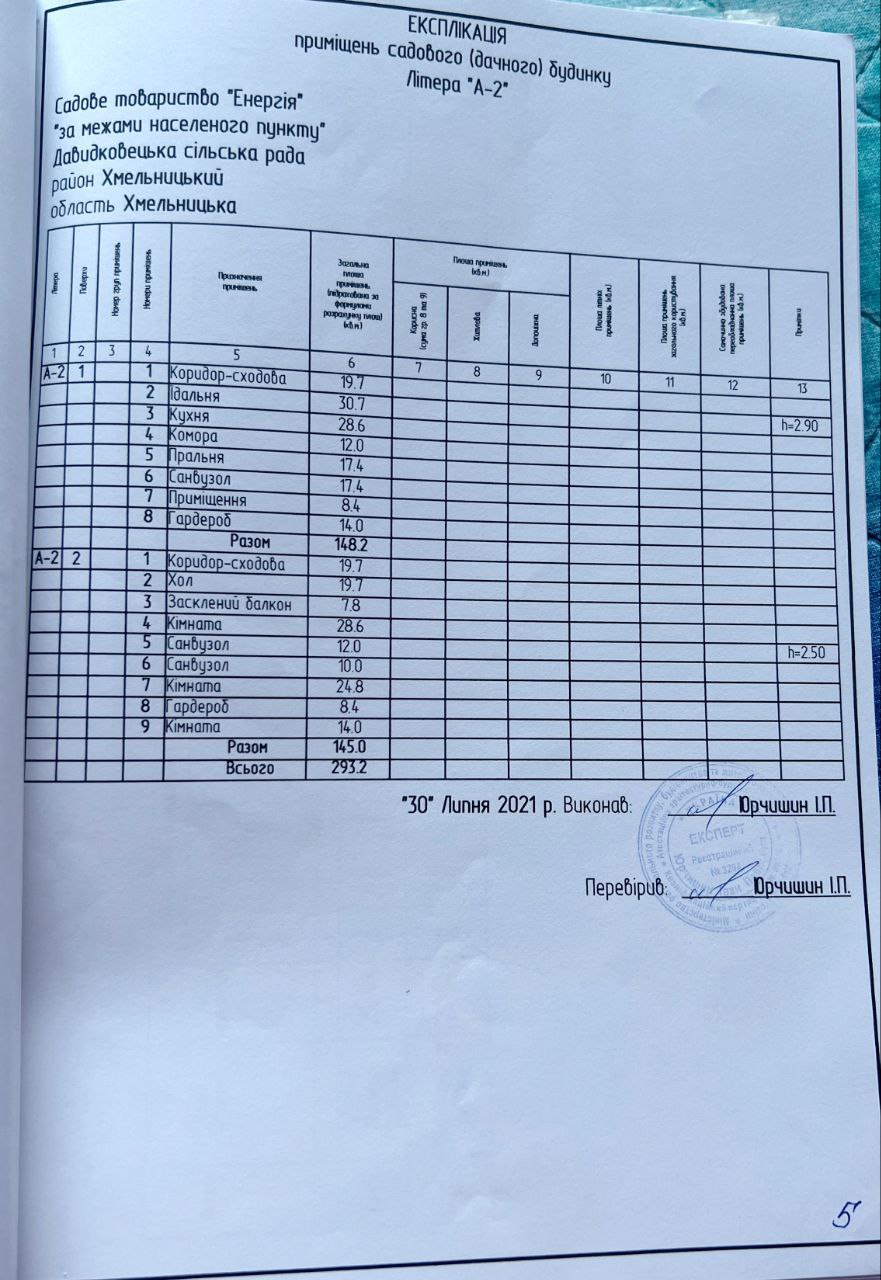 ЕКСПЛІКАЦІЯ
приміщень садового (дачного) будинку
Літера "А-2"
Садове товариство "Енергія"
"за межами населеного пункту"
Давидковецька сільська рада
район Хмельницький
область Хмельницька
Літера Поверхи Номер груп приміщень Номери приміщень Призначення приміщень Загальна площа приміщень (підрахована за формулами розрахунку площ) (кв.м.) Площа приміщень (кв.м.) Площа літніх приміщень (кв.м.) Площа приміщень загального користування (кв.м.) Самочинно збудована переобладнана площа приміщень (кв.м.) Примітки
Корисна (сума гр. 8 та 9) Житлова Допоміжна
1 2 3 4 5 6 7 8 9 10 11 12 13
А-2 1 1 Коридор-сходова 19.7
2 Їдальня 30.7
3 Кухня 28.6 h=2.90
4 Комора 12.0
5 Пральня 17.4
6 Санвузол 17.4
7 Приміщення 8.4
8 Гардероб 14.0
Разом 148.2
А-2 2 1 Коридор-сходова 19.7
2 Хол 19.7
3 Засклений балкон 7.8
4 Кімната 28.6
5 Санвузол 12.0 h=2.50
6 Санвузол 10.0
7 Кімната 24.8
8 Гардероб 8.4
9 Кімната 14.0
Разом 145.0
Всього 293.2
"30" Липня 2021 р. Виконав: Юрчишин І.П.
ЕКСПЕРТ
Перевірив: Юрчишин І.П.
5